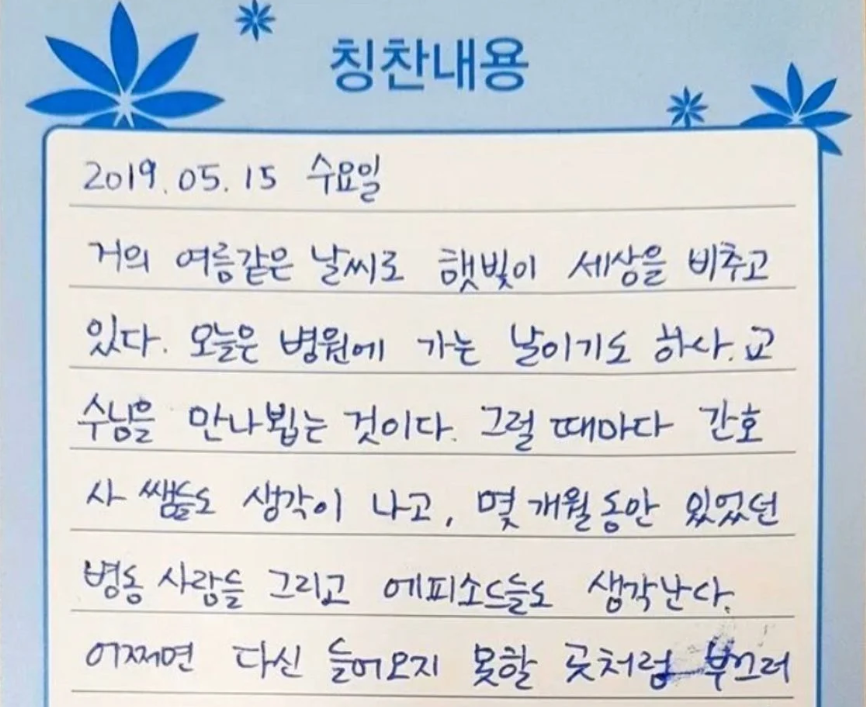 칭찬내용
2019.05.15 수요일
거의 여름같은 날씨로 햇빛이 세상을 비추고
있다. 오늘은 병원에 가는 날이기도 하사. 교
수님을 만나뵙는 것이다. 그럴 때마다 간호
사 쌤들도 생각이 나고, 몇 개월동안 있었던
병동 사람들 그리고 에피소드들도 생각난다.
어쩌면 다신 들어오지 못할 곳처럼 부끄러